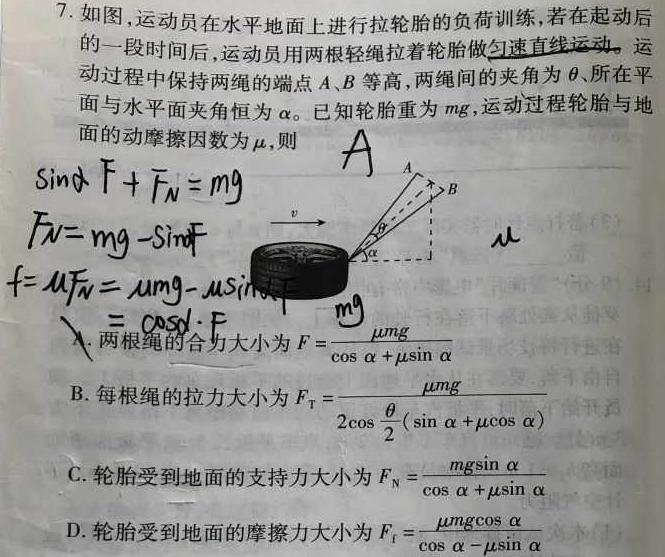 7. 如图,运动员在水平地面上进行拉轮胎的负荷训练,若在起动后
的一段时间后,运动员用两根轻绳拉着轮胎做匀速直线运动。运
动过程中保持两绳的端点 A、B 等高,两绳间的夹角为 θ、所在平
面与水平面夹角恒为 α。已知轮胎重为 mg,运动过程轮胎与地
面的动摩擦因数为 μ,则
A
sinα F + F_N = mg
F_N = mg - sinαF
f = μF_N = μmg - μsinαF
= cosα · F
A
B
v
θ
α
μ
mg
A. 两根绳的合力大小为 F = μmg / (cos α + μsin α)
B. 每根绳的拉力大小为 F_T = μmg / (2cos θ/2 (sin α + μcos α))
C. 轮胎受到地面的支持力大小为 F_N = mgsin α / (cos α + μsin α)
D. 轮胎受到地面的摩擦力大小为 F_f = μmgcos α / (cos α - μsin α)